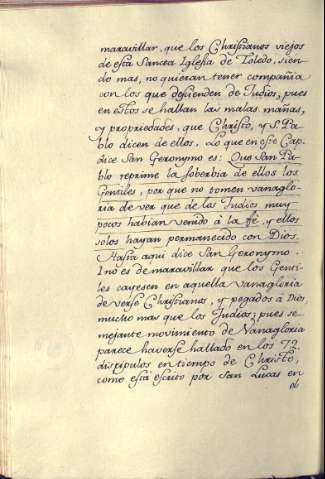 maravillar, que los Christianos viejos
de esta Sancta Iglesia de Toledo, sien
do mas, no quieran tener compañia
con los que descienden de Judios, pues
en estos se hallan las malas mañas,
y propriedades, que Christo, y S. Pa
blo dicen de ellos. Lo que en este Cap.
dice San Geronymo es: Que San Pa-
blo reprime la soberbia de ellos los
Gentiles, por que no tomen vanaglo-
ria de ver que de los Judios muy
pocos habian venido à la fé, y ellos
solos hayan permanecido con Dios.
Hasta aqui dice San Geronymo.
I no es de maravillar que los Genti-
les cayesen en aquella vanagloria
de verse Christianos, y pegados à Dios
mucho mas que los Judios; pues se
mejante movimiento de Vanagloria
parece haverse hallado en los 72
discipulos en tiempo de Christo,
como està escrito por San Lucas en
el